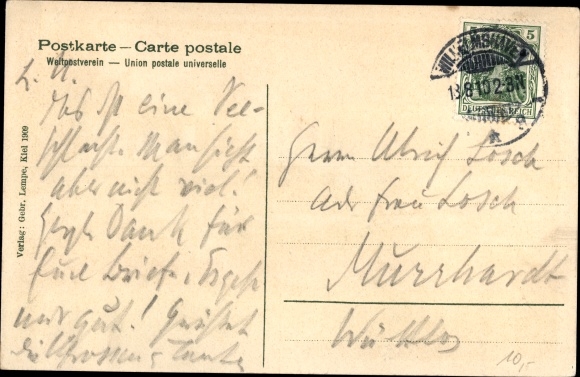 Postkarte — Carte postale
Weltpostverein — Union postale universelle
L. U.
Das ist eine See-
schlacht. Man sieht
aber nicht viel!
Herzl. Dank für
Eure Briefe. Es geht
mir gut! Grüßet
die Tante
Verlag: Gebr. Lempe, Kiel 1909
WILHELMSHAVEN
13.8.10.2-3N
5 5
DEUTSCHES REICH
Herrn Ulrich Losch
Adr Frau Losch
Murrhardt
Württbg
10,-